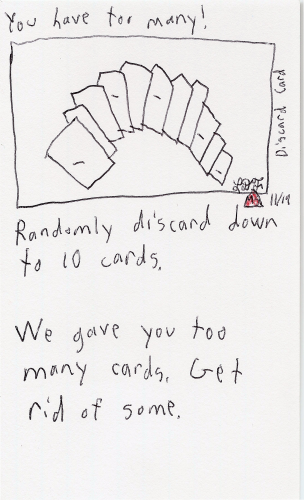 You have too many!
Discard Card
11/19
Randomly discard down
to 10 cards.
We gave you too
many cards. Get
rid of some.